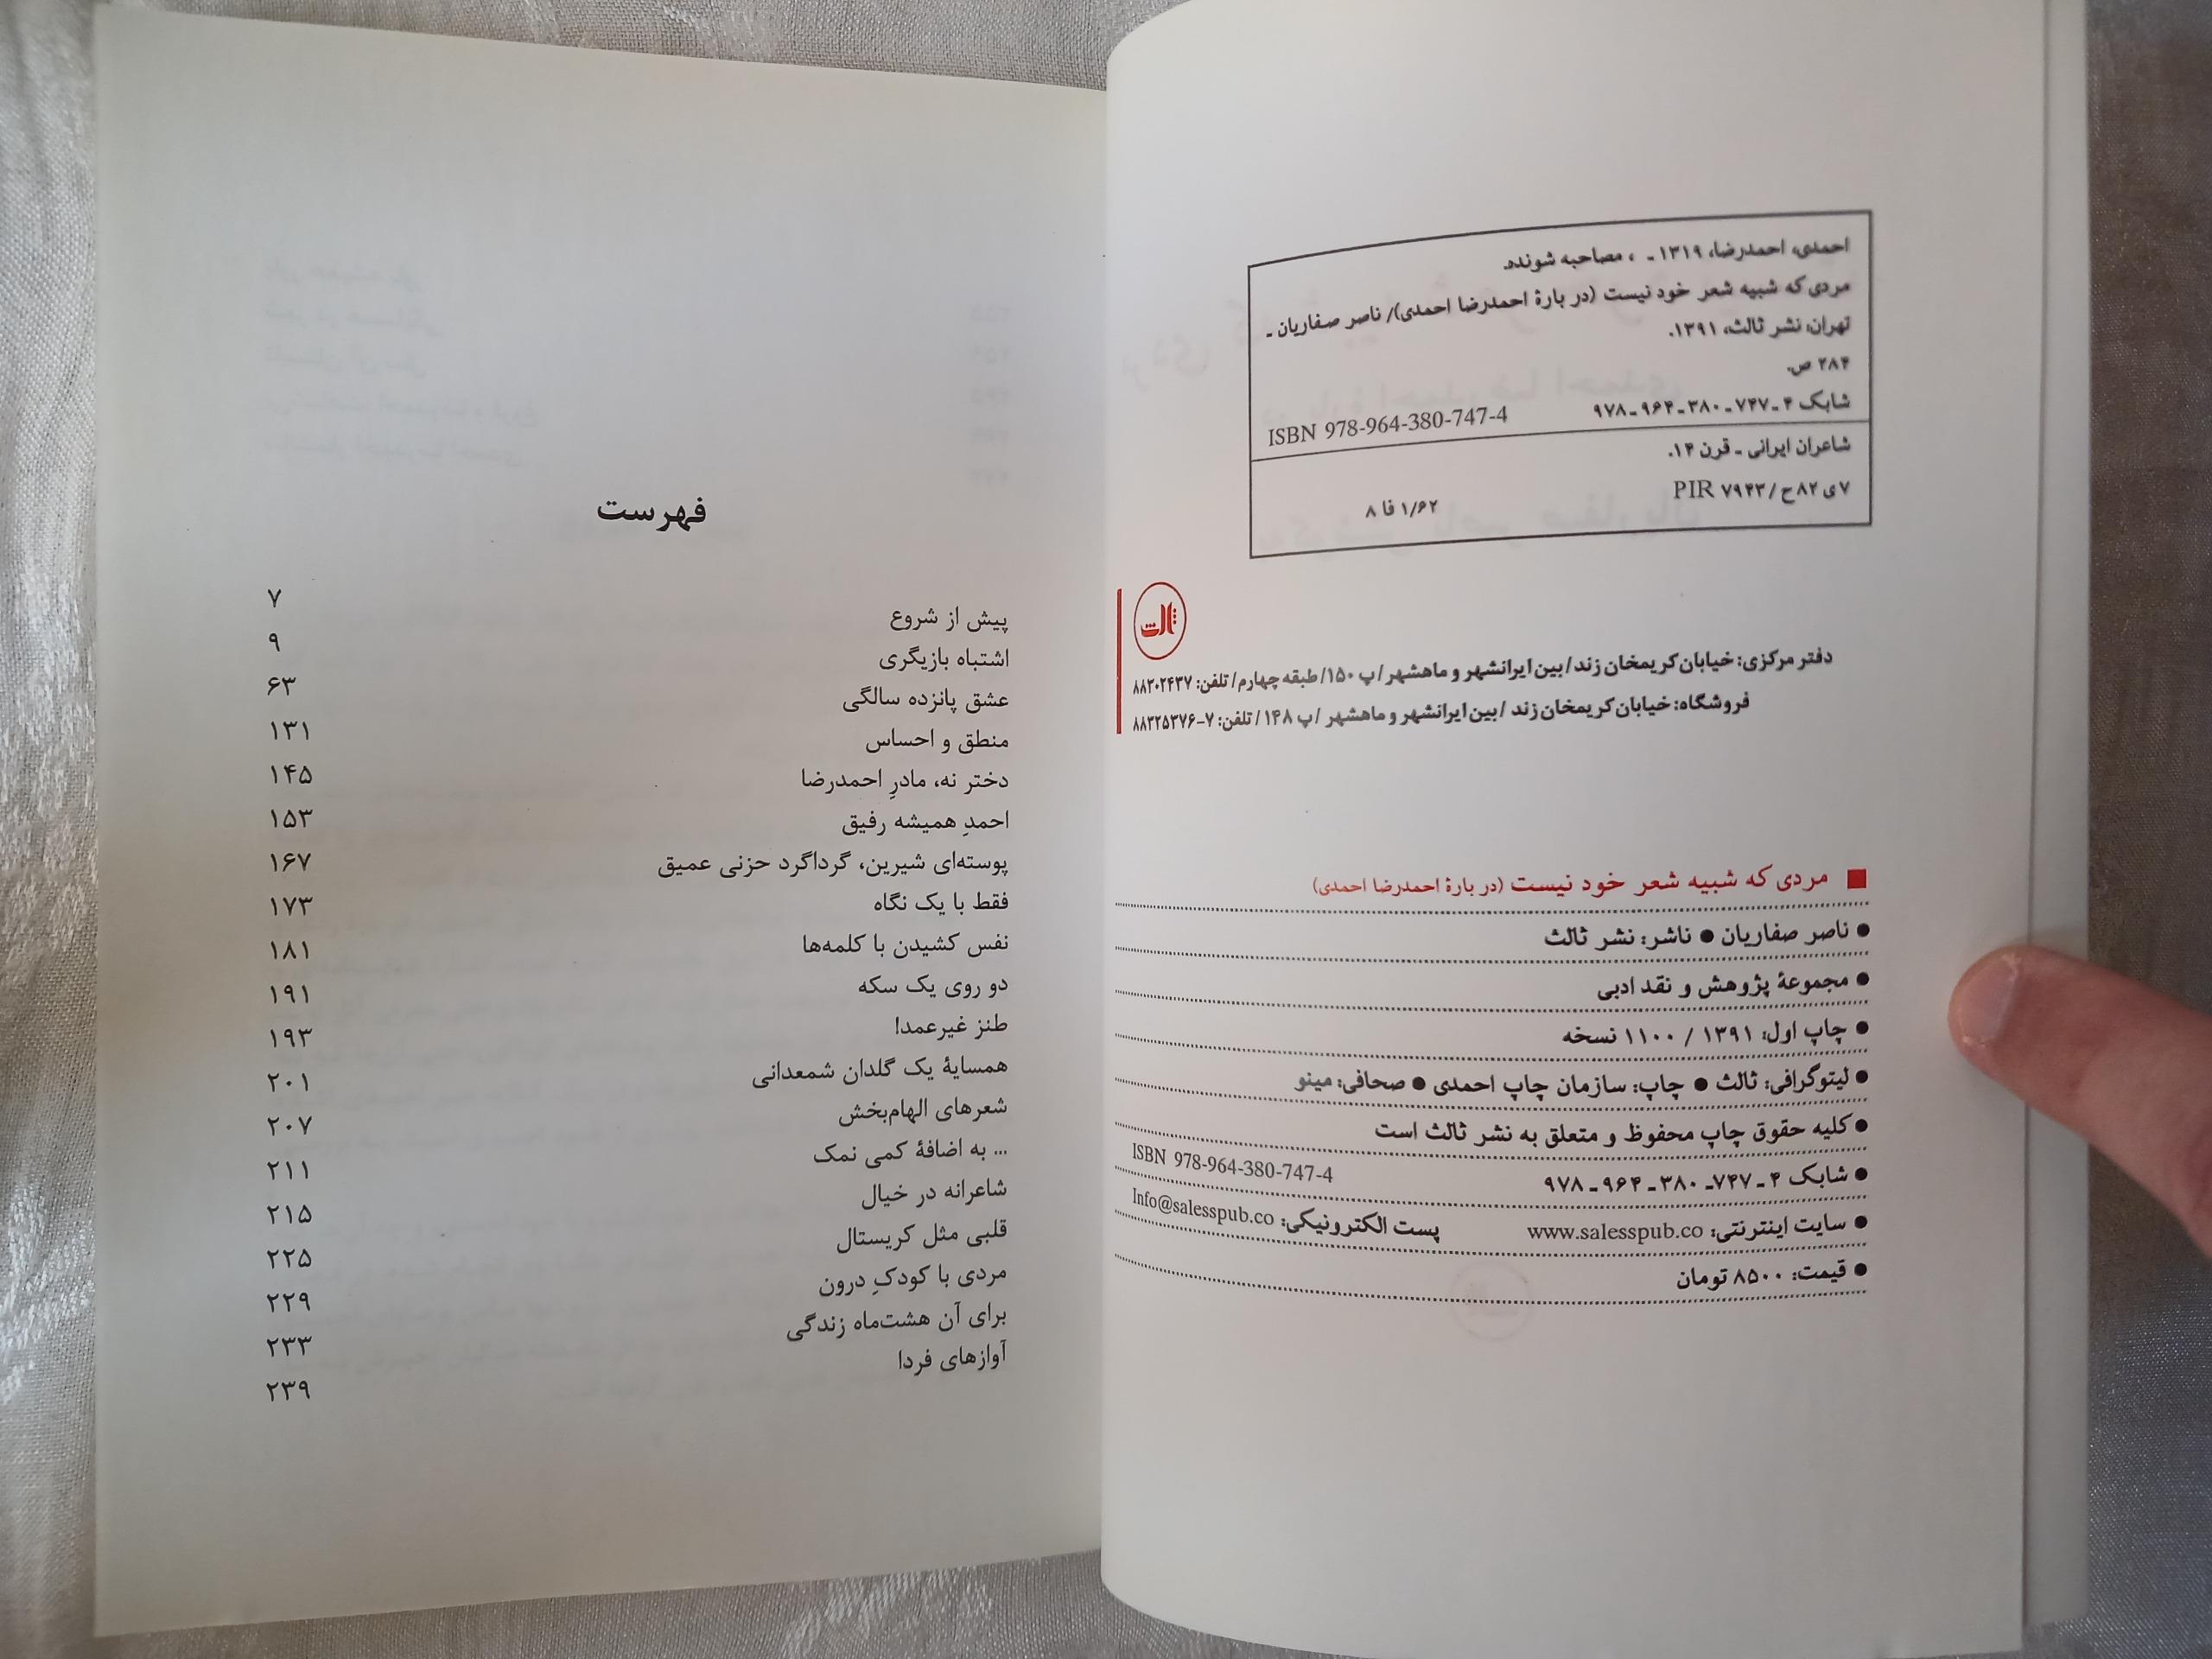 احمدی، احمدرضا، ۱۳۱۹ ـ ، مصاحبه شونده.
مردی که شبیه شعر خود نیست (در بارهٔ احمدرضا احمدی)/ ناصر صفاریان ـ
تهران: نشر ثالث، ۱۳۹۱.
۲۸۴ ص.
شابک ۴ ـ ۷۴۷ ـ ۳۸۰ ـ ۹۶۴ ـ ۹۷۸ ISBN 978-964-380-747-4
شاعران ایرانی ـ قرن ۱۴.
۷ ی ۸۲ ح / ۷۹۴۳ PIR
۱/۶۲ فا ۸
ثالث
دفتر مرکزی: خیابان کریمخان زند / بین ایرانشهر و ماهشهر / پ ۱۵۰/ طبقه چهارم / تلفن: ۸۸۳۰۲۴۳۷
فروشگاه: خیابان کریمخان زند / بین ایرانشهر و ماهشهر / پ ۱۴۸ / تلفن: ۷-۸۸۳۲۵۳۷۶
■ مردی که شبیه شعر خود نیست (در بارهٔ احمدرضا احمدی)
● ناصر صفاریان ● ناشر: نشر ثالث
● مجموعهٔ پژوهش و نقد ادبی
● چاپ اول: ۱۳۹۱ / ۱۱۰۰ نسخه
● لیتوگرافی: ثالث ● چاپ: سازمان چاپ احمدی ● صحافی: مینو
● کلیه حقوق چاپ محفوظ و متعلق به نشر ثالث است
● شابک ۴ ـ ۷۴۷ ـ ۳۸۰ ـ ۹۶۴ ـ ۹۷۸ ISBN 978-964-380-747-4
● سایت اینترنتی: www.salesspub.co پست الکترونیکی: Info@salesspub.co
● قیمت: ۸۵۰۰ تومان
فهرست
پیش از شروع ۷
اشتباه بازیگری ۹
عشق پانزده سالگی ۶۳
منطق و احساس ۱۳۱
دختر نه، مادرِ احمدرضا ۱۴۵
احمدِ همیشه رفیق ۱۵۳
پوسته‌ای شیرین، گرداگرد حزنی عمیق ۱۶۷
فقط با یک نگاه ۱۷۳
نفس کشیدن با کلمه‌ها ۱۸۱
دو روی یک سکه ۱۹۱
طنز غیرعمد! ۱۹۳
همسایهٔ یک گلدان شمعدانی ۲۰۱
شعرهای الهام‌بخش ۲۰۷
... به اضافهٔ کمی نمک ۲۱۱
شاعرانه در خیال ۲۱۵
قلبی مثل کریستال ۲۲۵
مردی با کودکِ درون ۲۲۹
برای آن هشت‌ماه زندگی ۲۳۳
آوازهای فردا ۲۳۹